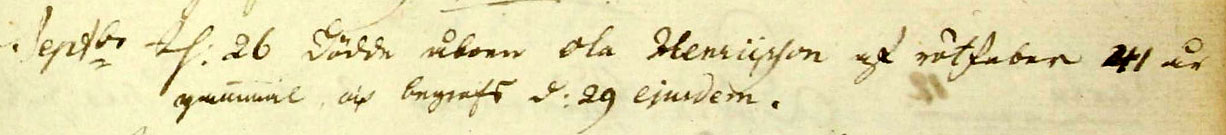 Septbr d: 26 Dödde åboen Ola Henricsson af rötfeber 41 år
gammal, ock begrofs d: 29 ejusdem.